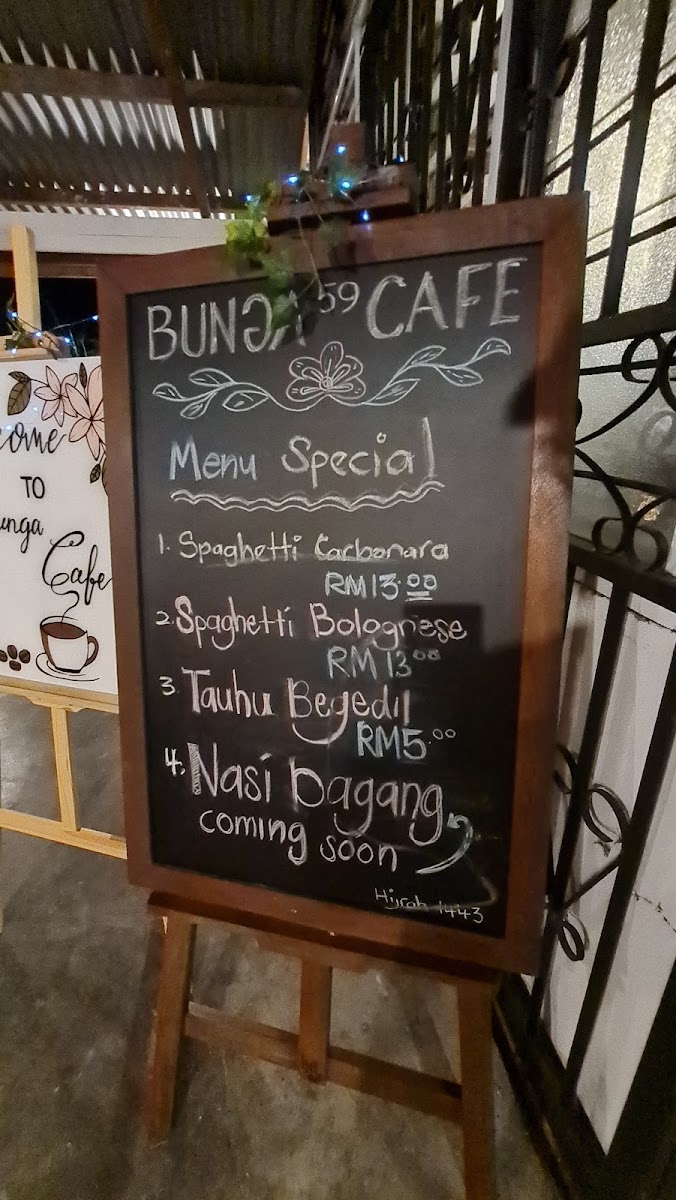 BUNGA 59 CAFE
Menu Special
1. Spaghetti Carbonara
RM13.00
2. Spaghetti Bolognese
RM13.00
3. Tauhu Begedil
RM5.00
4. Nasi Dagang
coming soon
Hijrah 1443
come
TO
unga
Cafe